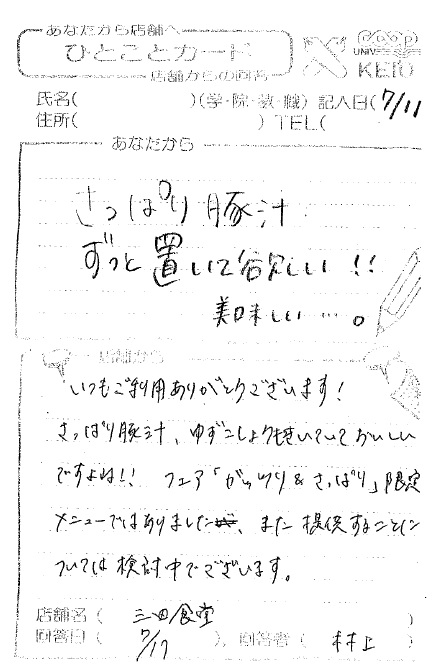 あなたから店舗へ
ひとことカード
店舗からの回答
UNIV CO-OP
KEIO
氏名(　　　)(学・院・教・職) 記入日(7/11
住所(　　　) TEL(
あなたから
さっぱり豚汁
ずっと置いて欲しい!!
美味しい…。
店舗から
いつもご利用ありがとうございます!
さっぱり豚汁、ゆずこしょうもきいていておいしい
ですよね!! フェア「がっつり&さっぱり」限定
メニューではありました、また提供することに
ついては検討中でございます。
店舗名(三田食堂)
回答日(7/17), 回答者(村上)